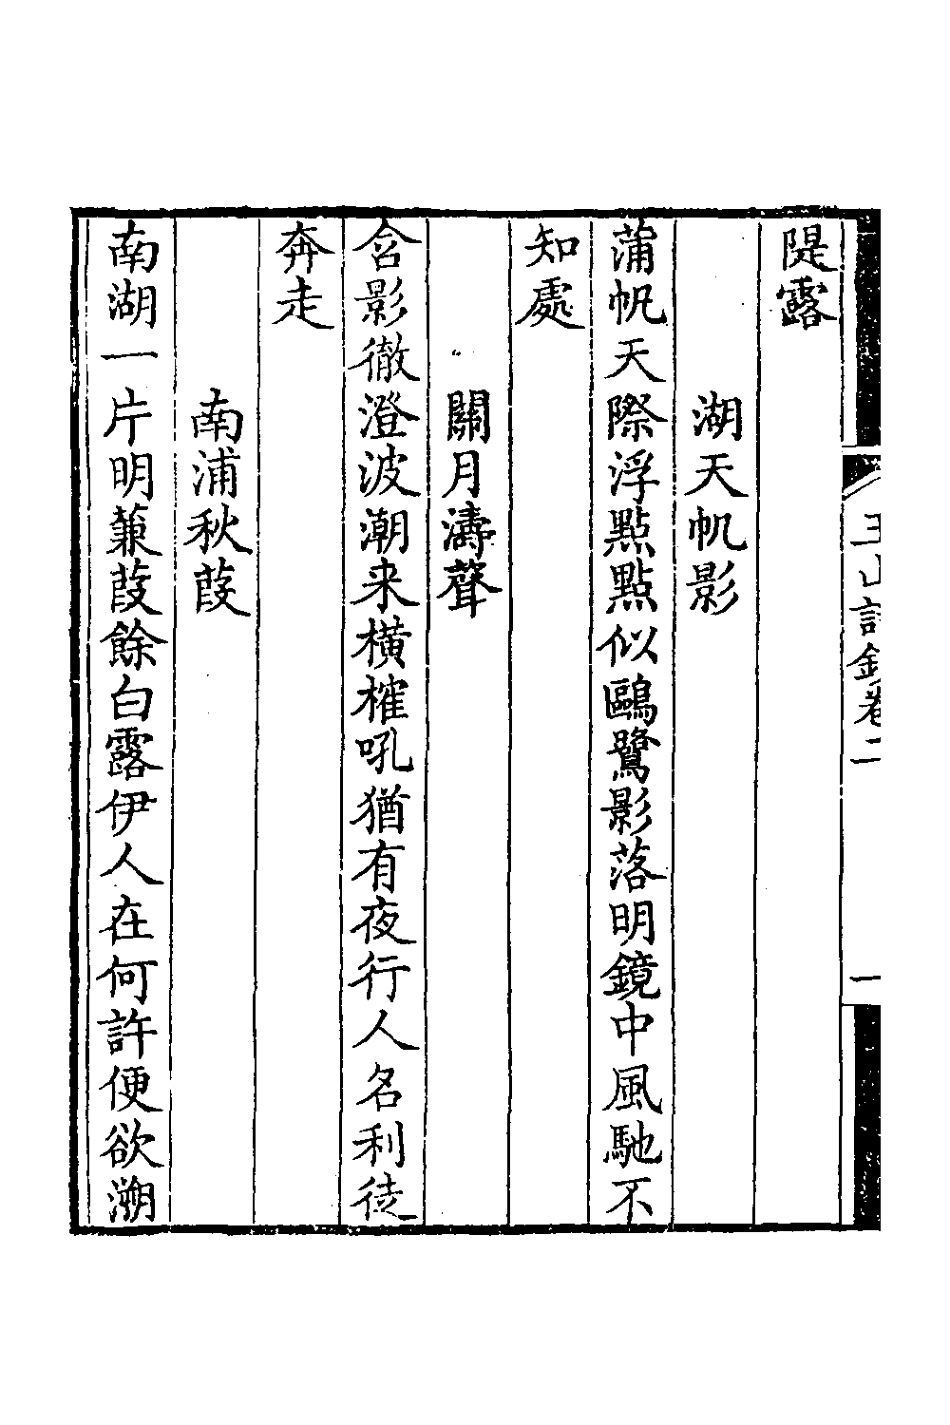 玉山詩鈔卷二
一
隄露
湖天帆影
蒲帆天際浮點點似鷗鷺影落明鏡中風馳不
知處
關月濤聲
含影徹澄波潮来橫榷吼猶有夜行人名利徒
奔走
南浦秋葭
南湖一片明蒹葭餘白露伊人在何許便欲溯